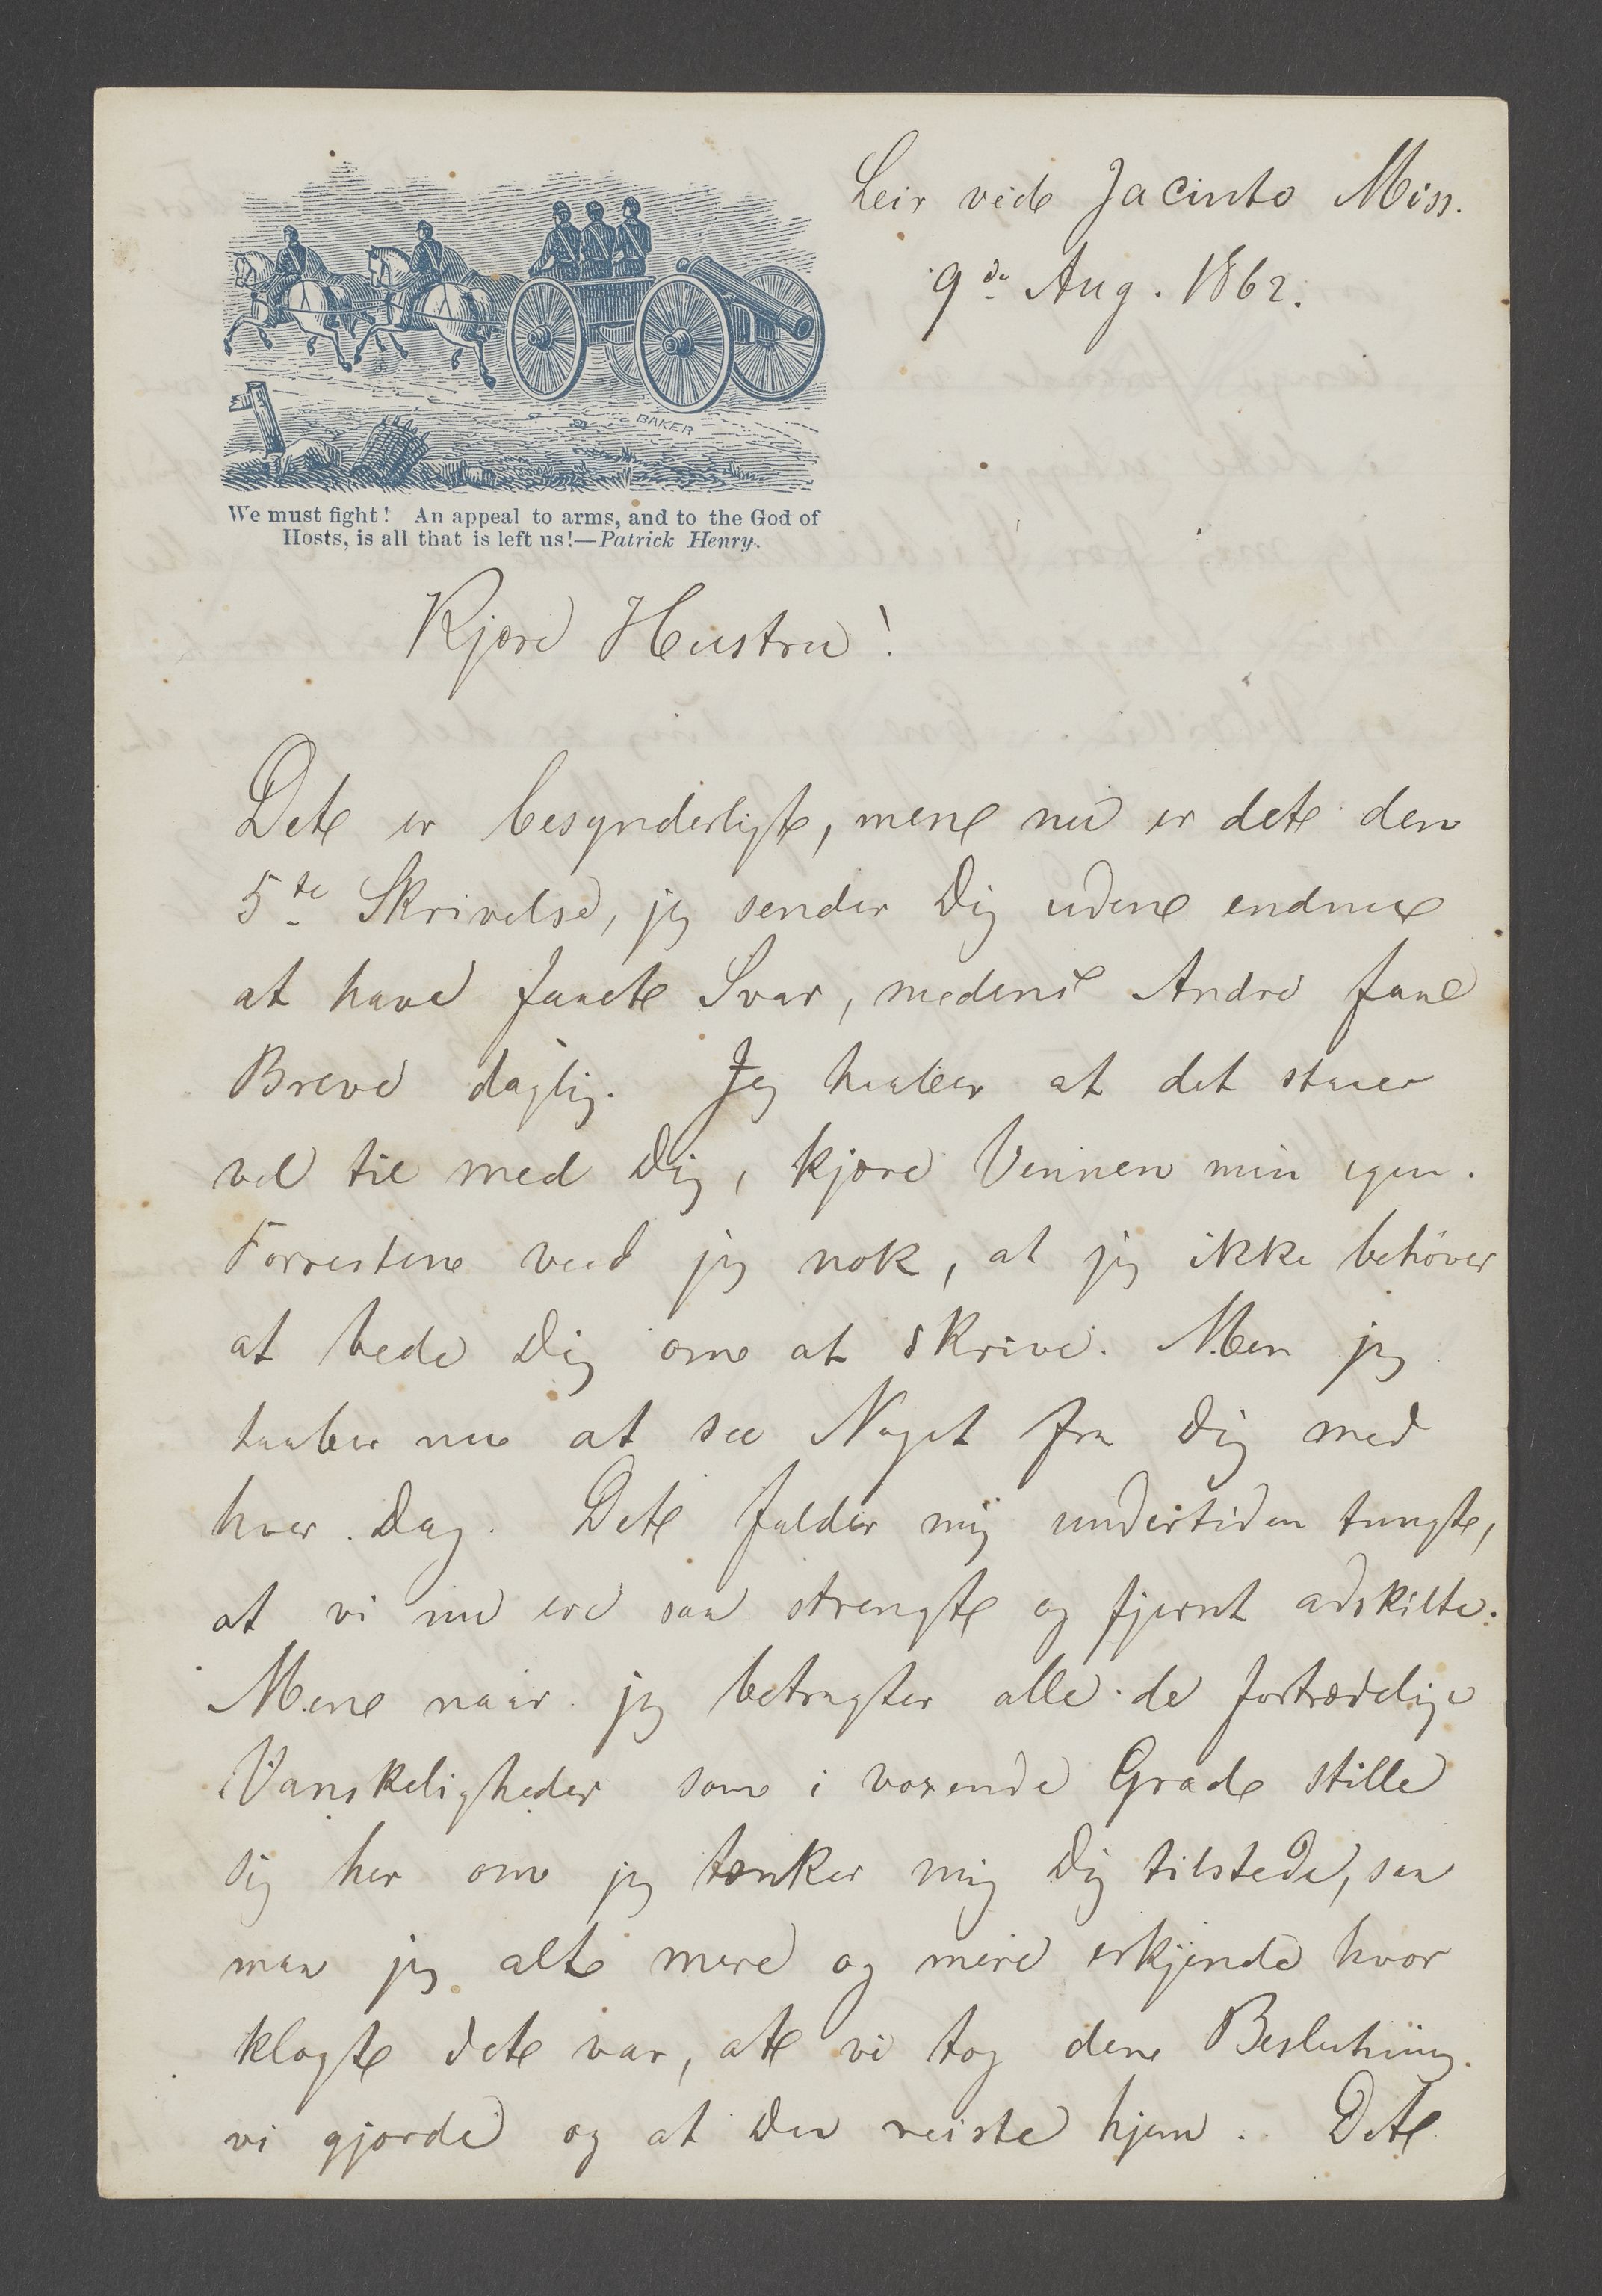 Leir ved Jacinto Miss.
9de Aug. 1862.
BAKER
We must fight! An appeal to arms, and to the God of
Hosts, is all that is left us!—Patrick Henry.
Kjære Hustru!
Det er besynderligt, men nu er det den
5te Skrivelse, jeg sender Dig uden endnu
at have faaet Svar, medens Andre faae
Breve daglig. Jeg haaber at det staaer
vel til med Dig, kjære Vennen min igen.
Forresten veed jeg nok, at jeg ikke behøver
at bede Dig om at skrive. Men jeg
haaber nu at see Noget fra Dig med
hver Dag. Det falder mig undertiden tungt,
at vi nu ere saa strengt og fjernt adskilte.
Men naar jeg betragter alle de fortrædelige
Vanskeligheder som i voxende Grad stille
sig her om jeg tænker mig Dig tilstede, saa
maa jeg alt mere og mere erkjende hvor
klogt det var, at vi tog den Beslutning
vi gjorde og at Du reiste hjem. Det